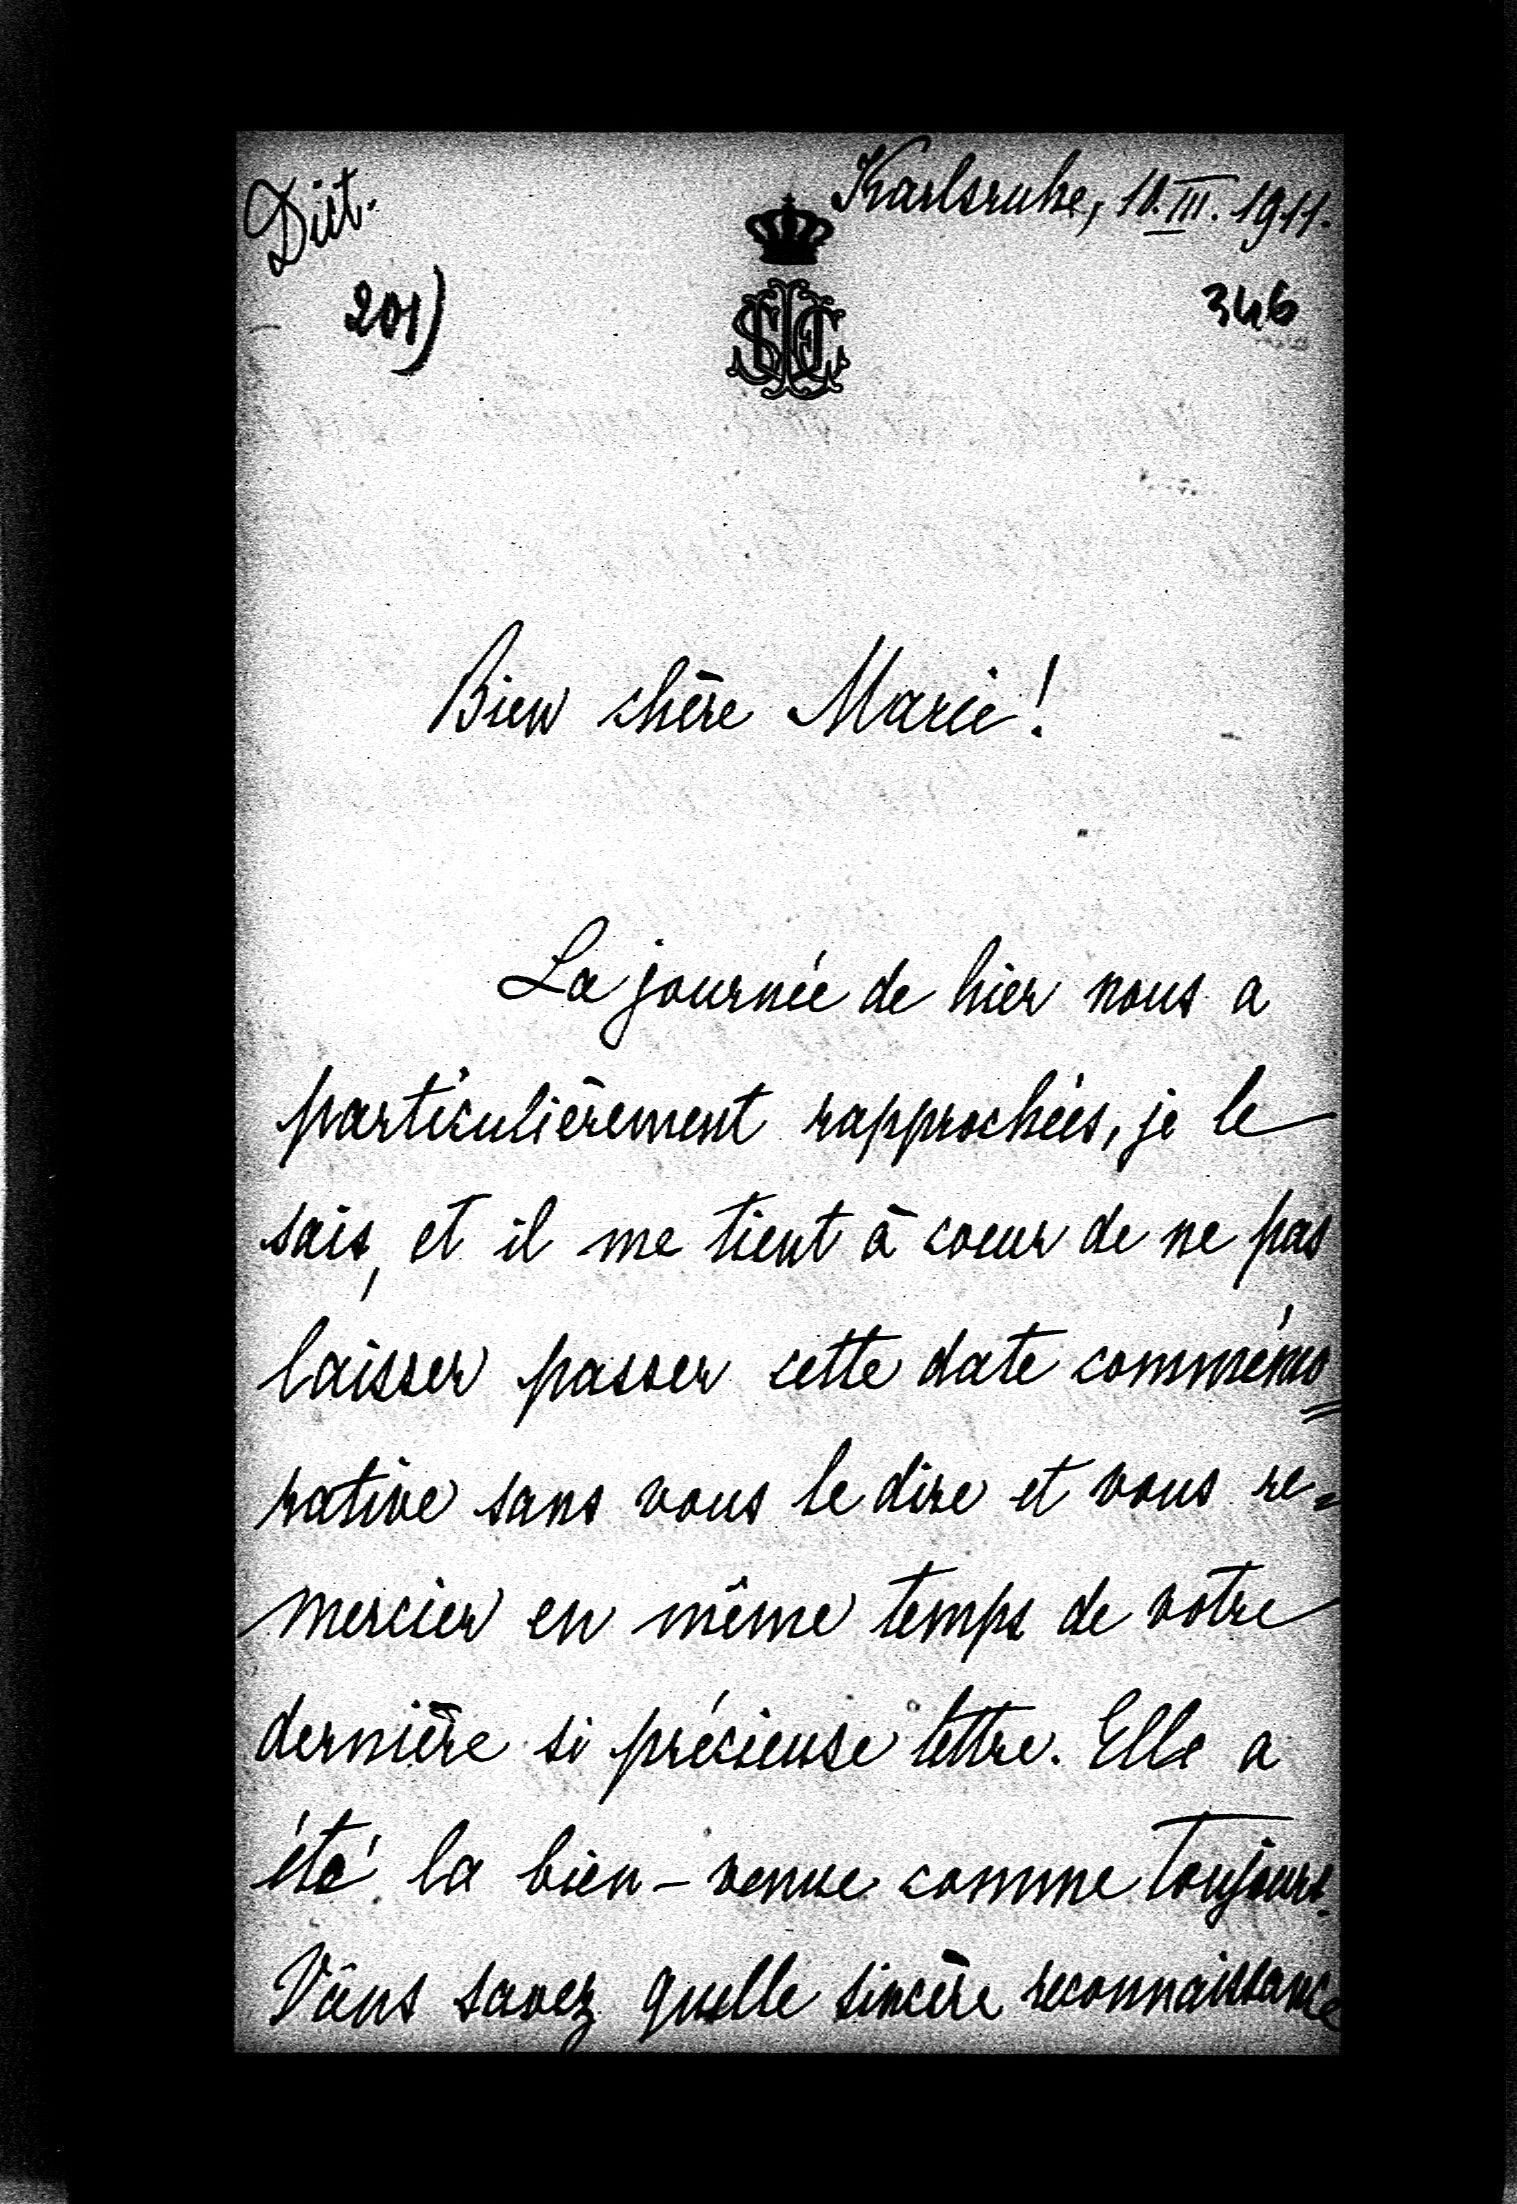 Dict.
Karlsruhe, 10. III. 1911.
201)
346
Bien chère Marie!
La journée de hier nous a
particulièrement rapprochées, je le
sais, et il me tient à coeur de ne pas
laisser passer cette date commémo=
rative sans vous le dire et vous re=
mercier en même temps de votre
dernière si précieuse lettre. Elle a
été la bien-venue comme toujours.
Vous savez quelle sincère reconnaissance